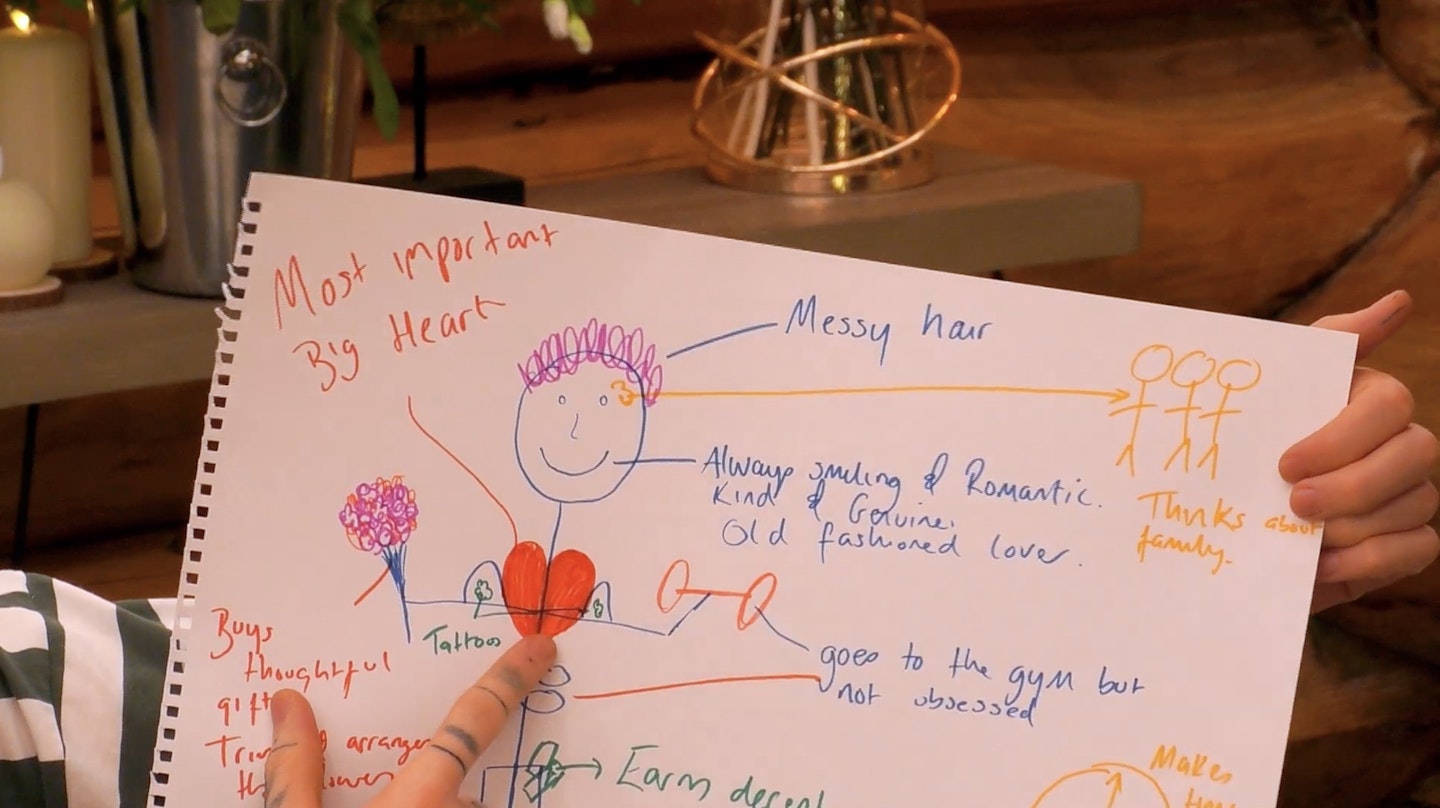 Most important
Big Heart
Messy hair
Always smiling & Romantic.
Kind & Genuine.
Old fashioned lover.
Thinks about
family.
Tattoos
Buys
thoughtful
gift
arranger
goes to the gym but
not obsessed
Earn decent
Makes